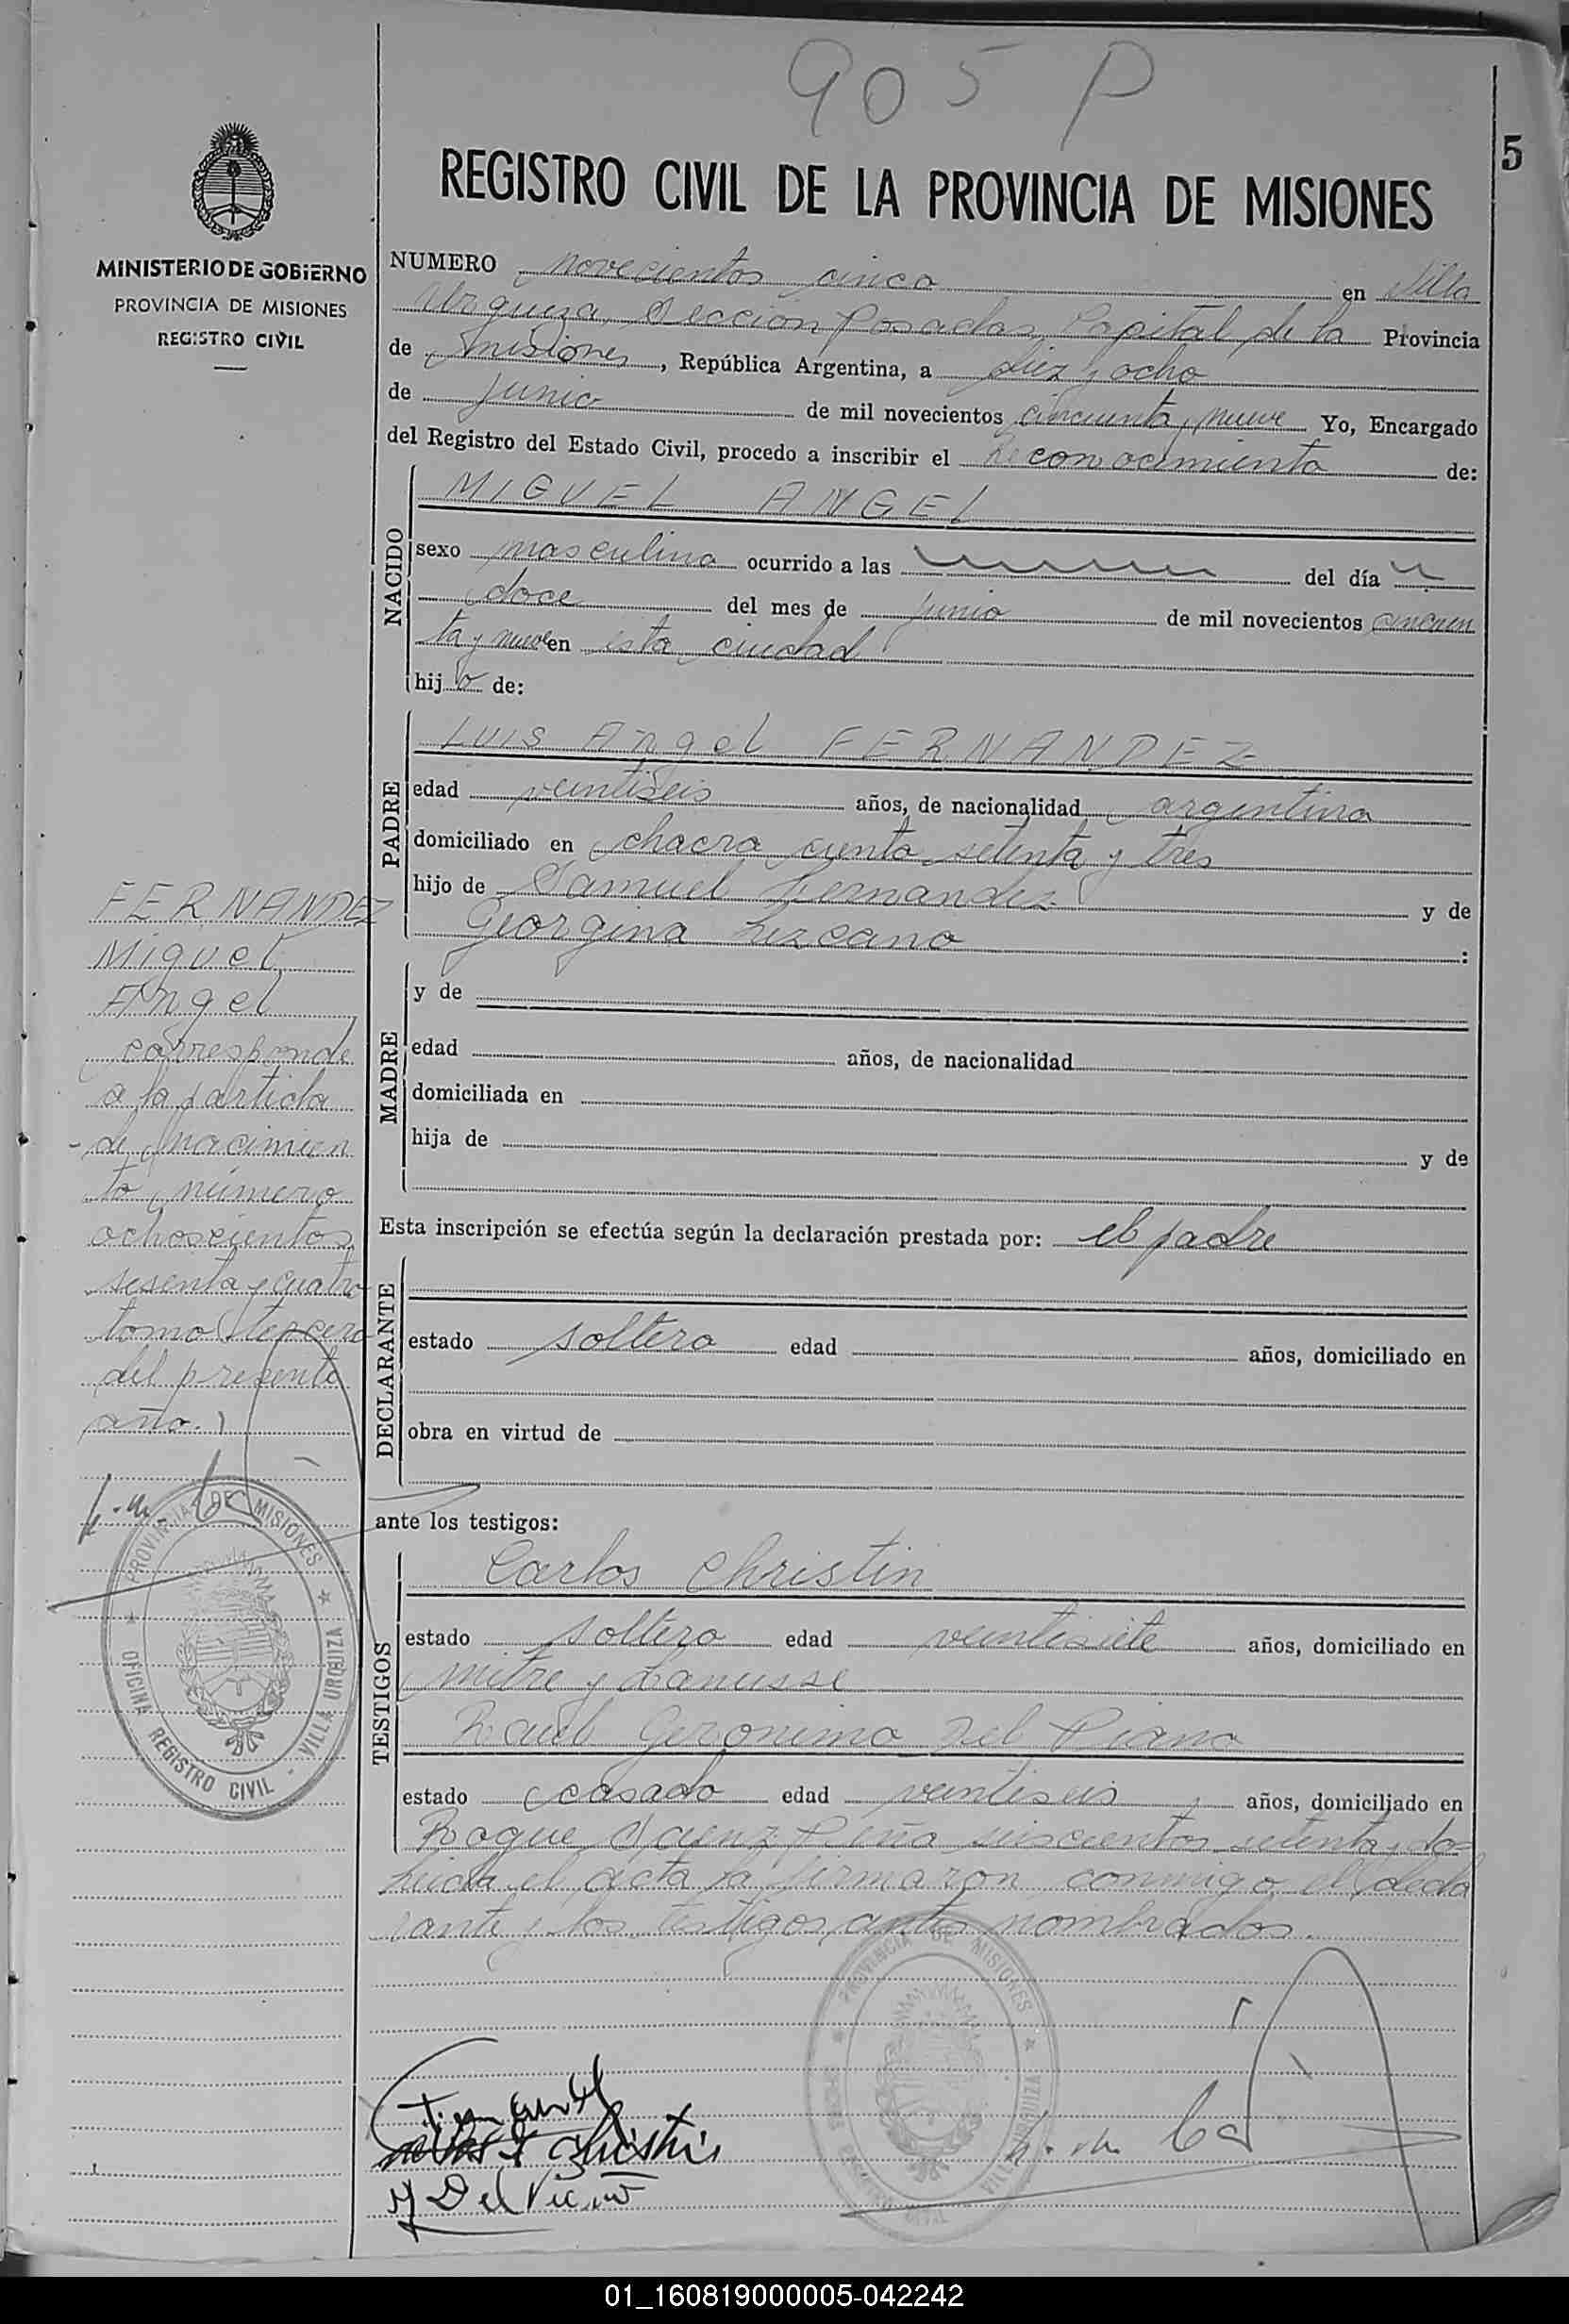 905 P
5
MINISTERIO DE GOBIERNO
PROVINCIA DE MISIONES
REGISTRO CIVIL
REGISTRO CIVIL DE LA PROVINCIA DE MISIONES
NUMERO novecientos cinco en Villa
Urquiza, Sección Posadas, Capital de la Provincia
de Misiones, República Argentina, a diez y ocho
de junio de mil novecientos cincuenta y nueve Yo, Encargado
del Registro del Estado Civil, procedo a inscribir el Reconocimiento de:
NACIDO
MIGUEL ANGEL
sexo masculino ocurrido a las del día
doce del mes de junio de mil novecientos cincuen
ta y nueve en esta ciudad
hijo de:
PADRE
LUIS Angel FERNANDEZ
edad veintiseis años, de nacionalidad argentina
domiciliado en chacra ciento setenta y tres
hijo de Samuel Fernandez y de
Georgina Lezcano :
MADRE
y de
edad años, de nacionalidad
domiciliada en
hija de y de
Esta inscripción se efectúa según la declaración prestada por: el padre
DECLARANTE
estado soltero edad años, domiciliado en
obra en virtud de
ante los testigos:
TESTIGOS
Carlos Christin
estado soltero edad veintisiete años, domiciliado en
mitre y Lanusse
Raul Geronimo Del Piano
estado casado edad veintiseis años, domiciliado en
Roque Saenz Peña seiscientos setenta y do-
Leida el acta la firmaron conmigo el decla
rante y los testigos antes nombrados.
FERNANDEZ
Miguel
Angel
corresponde
a la partida
de nacimien
to número
ochoscientos
sesenta y cuatro
tomo tercero
del presente
año.
PROVINCIA DE MISIONES
OFICINA REGISTRO CIVIL - VILLA URQUIZA
PROVINCIA DE MISIONES
VILLA URQUIZA
Christin
Del Piano
01_160819000005-042242